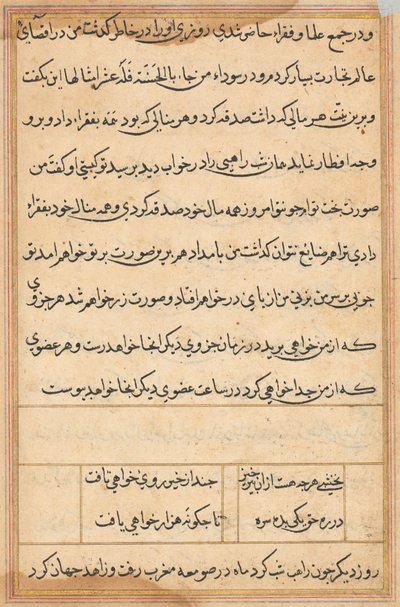 و در جمع علما و فقراء حاضر شدی روزی او را در خاطر گذشت من در اقصای
عالم تجارت بسیار کردم و در سوداء من جاء بالحسنة فله عشر امثالها این بگفت
و برین نیت هر مالی که داشت صدقه کرد و هر منالی که بود همه بفقراء داد و برو
وجه افطار نماند همان شب راهبی را در خواب دید پرسید تو کیستی او گفت من
صورت بخت توام چون تو امروز همه مال خود صدقه کردی و همه منال خود بفقراء
دادی ترا هم ضایع نتوان گذاشت من بامداد هم برین صورت بر تو خواهم آمد تو
چوبی بر سر من بزنی من از پای در خواهم افتاد و صورت زر خواهم شد هر جزوی
که از من خواهی برید در زمان جزوی دیگر آنجا خواهد رست و هر عضوی
که از من جدا خواهی کرد در ساعت عضوی دیگر آنجا خواهد پیوست
نخشبی هرچه هست از آن برخیز چند از خیر روی خواهی تافت
در ره حق یکی بده سره تا چگونه هزار خواهی یافت
روز دیگر چون راهب شب کرد ماه در صومعه مغرب رفت و زاهد جهان کرد